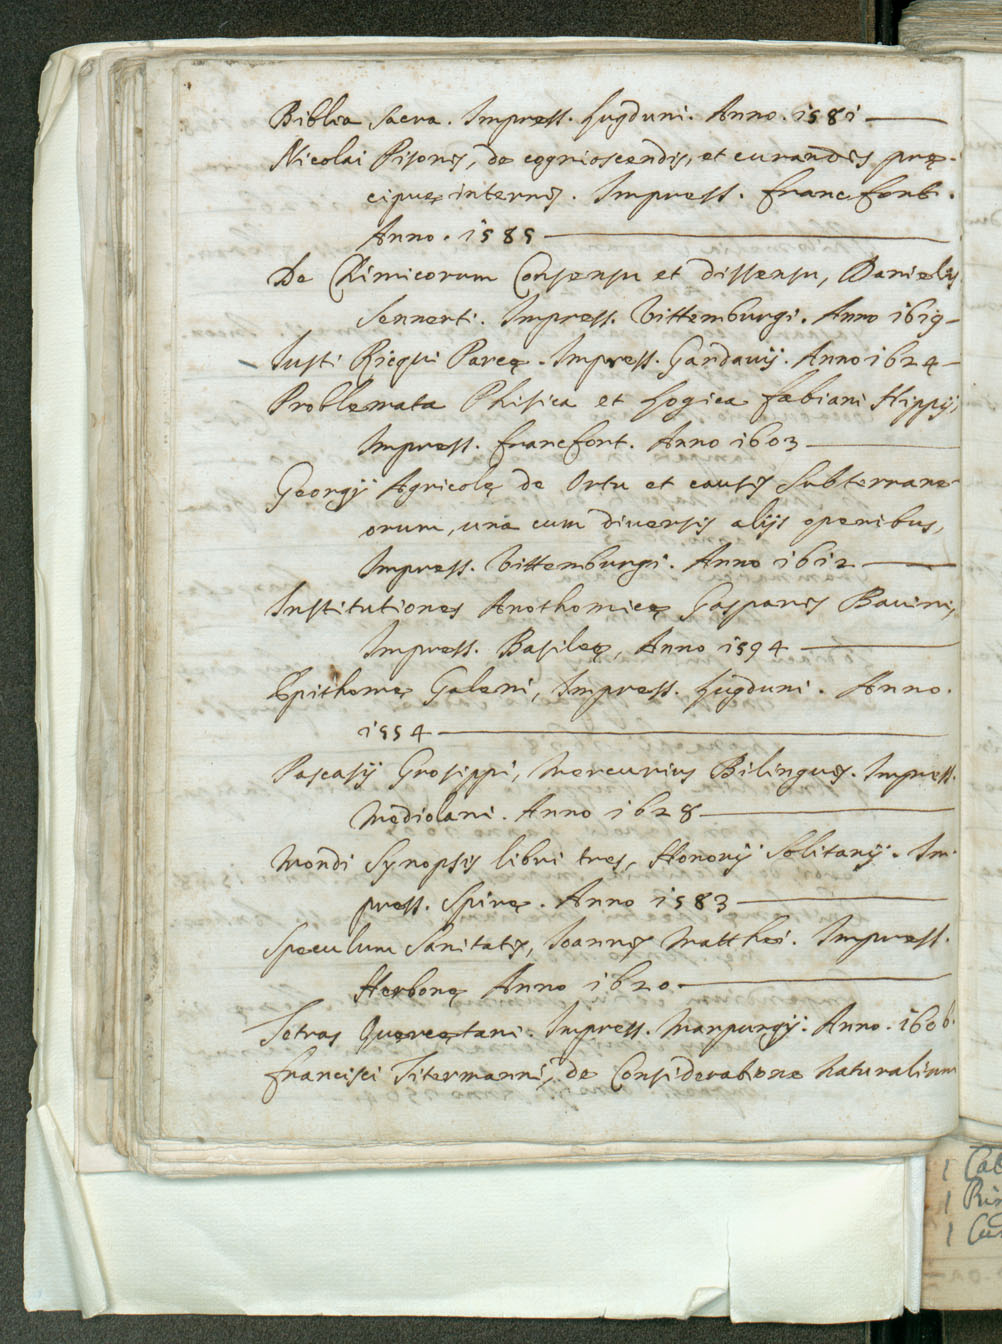 Biblia Sacra. Impress. Lugduni. Anno. 1581
Nicolai Pisonis, de cognioscendis, et curandis prę-
cipuę internis. Impress. Francfort.
Anno. 1585
De Chimicorum Consensu et dissensu, Danielis
Sennerti. Impress. Vittemburgi. Anno 1619
Iusti Ricqui Parcę. Impress. Gandavij. Anno 1624
Problemata Phisica et Logica Fabiani Hippij,
Impress. Francfort. Anno 1603
Georgij Agricolę de Ortu et causis Subterrane-
orum, una cum diversis alijs operibus,
Impress. Vittemburgi. Anno 1612
Institutiones Anothomicę Gasparis Bauini,
Impress. Basileę, Anno 1594
Epithomę Galeni, Impress. Lugduni. Anno.
1554
Pascasij Grosippi, Mercurius Bilinguis. Impress.
Mediolani. Anno 1628
Mondi Synopsis libri tres, Honorij Solitarij. Im-
press. Spirę. Anno 1583
Speculum Sanitatis, Ioannis Matthei. Impress.
Herbonę Anno 1620.
Tetras Quercętani. Impress. Marpurgij. Anno. 1606.
Francisci Titermanni, de Consideratione Naturalium